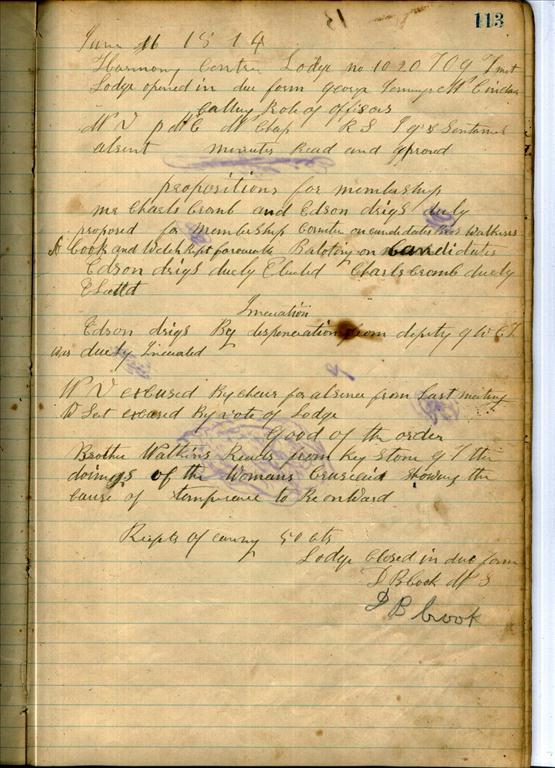 113
June 16 1874
Harmony Centre Lodge no 1020 I O G T met
Lodge opened in due form George Jennings
calling Role of officers
W V P W C W Chap R S I G & Sentinel
absent minutes Read and aproved
propositions for membership
mr Charls Cromb and Edson drigs duely
proposed for membership Comitee on candidates Bros Walkins
Cook and Welch Rept favorable Baloting on Candidates
Edson drigs duely Elected Charls Cromb duely
Elected
Edson drigs By from deputy G W C T
was duely
W V excused By chair for absence from Last meeting
excused By vote of Lodge
Good of the order
Brother Watkins Reads from Key Stone of the
doings of the Womans Crusaid Showing the
cause of temprance to Be onward
Recpts of evning 50 cts
Lodge Closed in due form
D B Cook W S
D B Cook